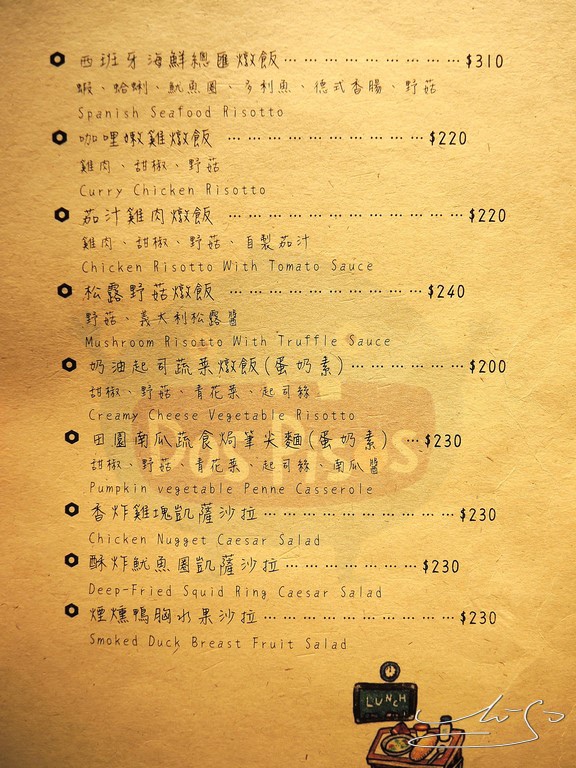 西班牙海鮮總匯燉飯 ... $310
蝦、蛤蜊、魷魚圈、多利魚、德式香腸、野菇
Spanish Seafood Risotto
咖哩嫩雞燉飯 ... $220
雞肉、甜椒、野菇
Curry Chicken Risotto
茄汁雞肉燉飯 ... $220
雞肉、甜椒、野菇、自製茄汁
Chicken Risotto With Tomato Sauce
松露野菇燉飯 ... $240
野菇、義大利松露醬
Mushroom Risotto With Truffle Sauce
奶油起司蔬菜燉飯(蛋奶素) ... $200
甜椒、野菇、青花菜、起司絲
Creamy Cheese Vegetable Risotto
田園南瓜蔬食焗筆尖麵(蛋奶素) ... $230
甜椒、野菇、青花菜、起司絲、南瓜醬
Pumpkin vegetable Penne Casserole
香炸雞塊凱薩沙拉 ... $230
Chicken Nugget Caesar Salad
酥炸魷魚圈凱薩沙拉 ... $230
Deep-Fried Squid Ring Caesar Salad
煙燻鴨胸水果沙拉 ... $230
Smoked Duck Breast Fruit Salad
LUNCH